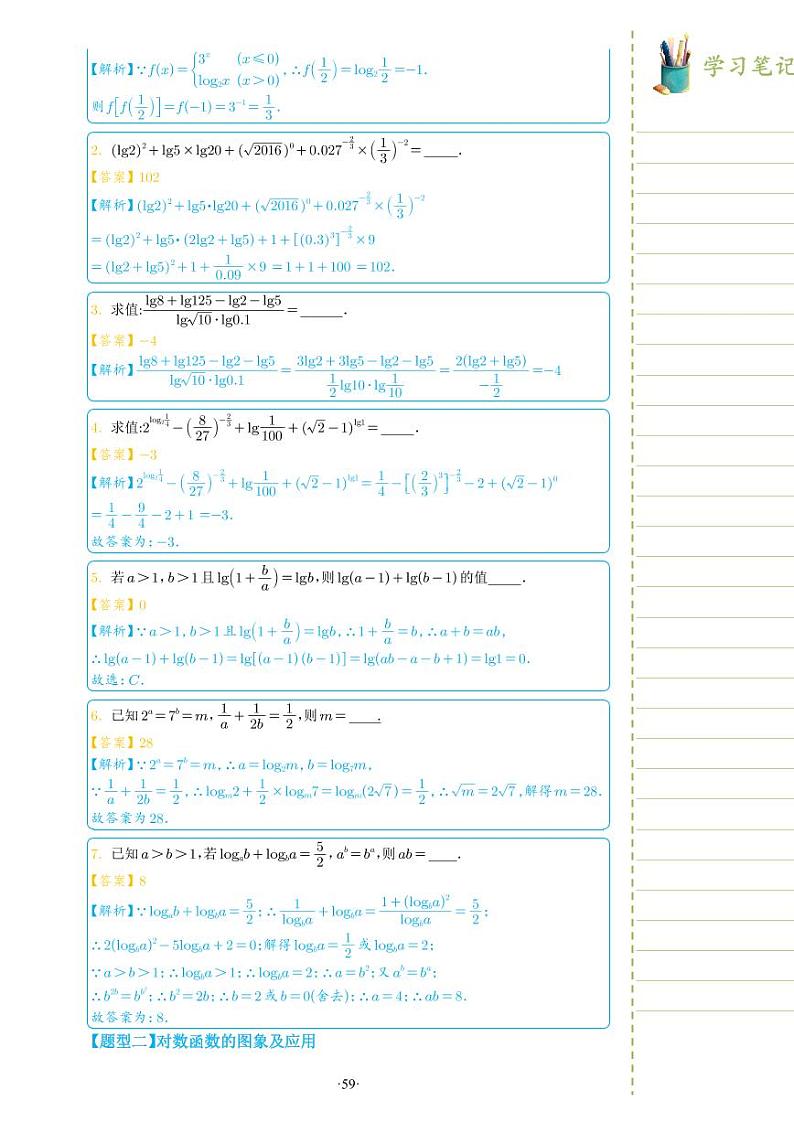 【解析】∵f(x)={3ˣ (x≤0) log₂x (x>0), ∴f(1/2)=log₂1/2=-1.
则f[f(1/2)]=f(-1)=3⁻¹=1/3.
学习笔记
2. (lg2)²+lg5×lg20+(√2016)⁰+0.027^(-2/3)×(1/3)⁻²=____.
【答案】102
【解析】(lg2)²+lg5•lg20+(√2016)⁰+0.027^(-2/3)×(1/3)⁻²
=(lg2)²+lg5•(2lg2+lg5)+1+[(0.3)³]^(-2/3)×9
=(lg2+lg5)²+1+1/0.09×9=1+1+100=102.
3. 求值:(lg8+lg125-lg2-lg5)/(lg√10·lg0.1)=_____.
【答案】-4
【解析】(lg8+lg125-lg2-lg5)/(lg√10·lg0.1)=(3lg2+3lg5-lg2-lg5)/(1/2lg10·lg1/10)=2(lg2+lg5)/(-1/2)=-4
4. 求值:2^(log₂1/4)-(8/27)^(-2/3)+lg1/100+(√2-1)^(lg1)=____.
【答案】-3
【解析】2^(log₂1/4)-(8/27)^(-2/3)+lg1/100+(√2-1)^(lg1)=1/4-[(2/3)³]^(-2/3)-2+(√2-1)⁰
=1/4-9/4-2+1=-3.
故答案为:-3.
5. 若a>1,b>1且lg(1+b/a)=lgb,则lg(a-1)+lg(b-1)的值____.
【答案】0
【解析】∵a>1,b>1且lg(1+b/a)=lgb,∴1+b/a=b,∴a+b=ab,
∴lg(a-1)+lg(b-1)=lg[(a-1)(b-1)]=lg(ab-a-b+1)=lg1=0.
故选:C.
6. 已知2ᵃ=7ᵇ=m,1/a+1/2b=1/2,则m=____.
【答案】28
【解析】∵2ᵃ=7ᵇ=m,∴a=log₂m,b=log₇m,
∵1/a+1/2b=1/2,∴logₘ2+1/2×logₘ7=logₘ(2√7)=1/2,∴√m=2√7,解得m=28.
故答案为28.
7. 已知a>b>1,若log_a b+log_b a=5/2,aᵇ=bᵃ,则ab=____.
【答案】8
【解析】∵log_a b+log_b a=5/2;∴1/(log_b a)+log_b a=(1+(log_b a)²)/(log_b a)=5/2;
∴2(log_b a)²-5log_b a+2=0;解得log_b a=1/2或log_b a=2;
∵a>b>1;∴log_b a>1;∴log_b a=2;∴a=b²;又aᵇ=bᵃ;
∴b^(2b)=b^(b²);∴b²=2b;∴b=2或b=0(舍去);∴a=4;∴ab=8.
故答案为:8.
【题型二】对数函数的图象及应用
·59·